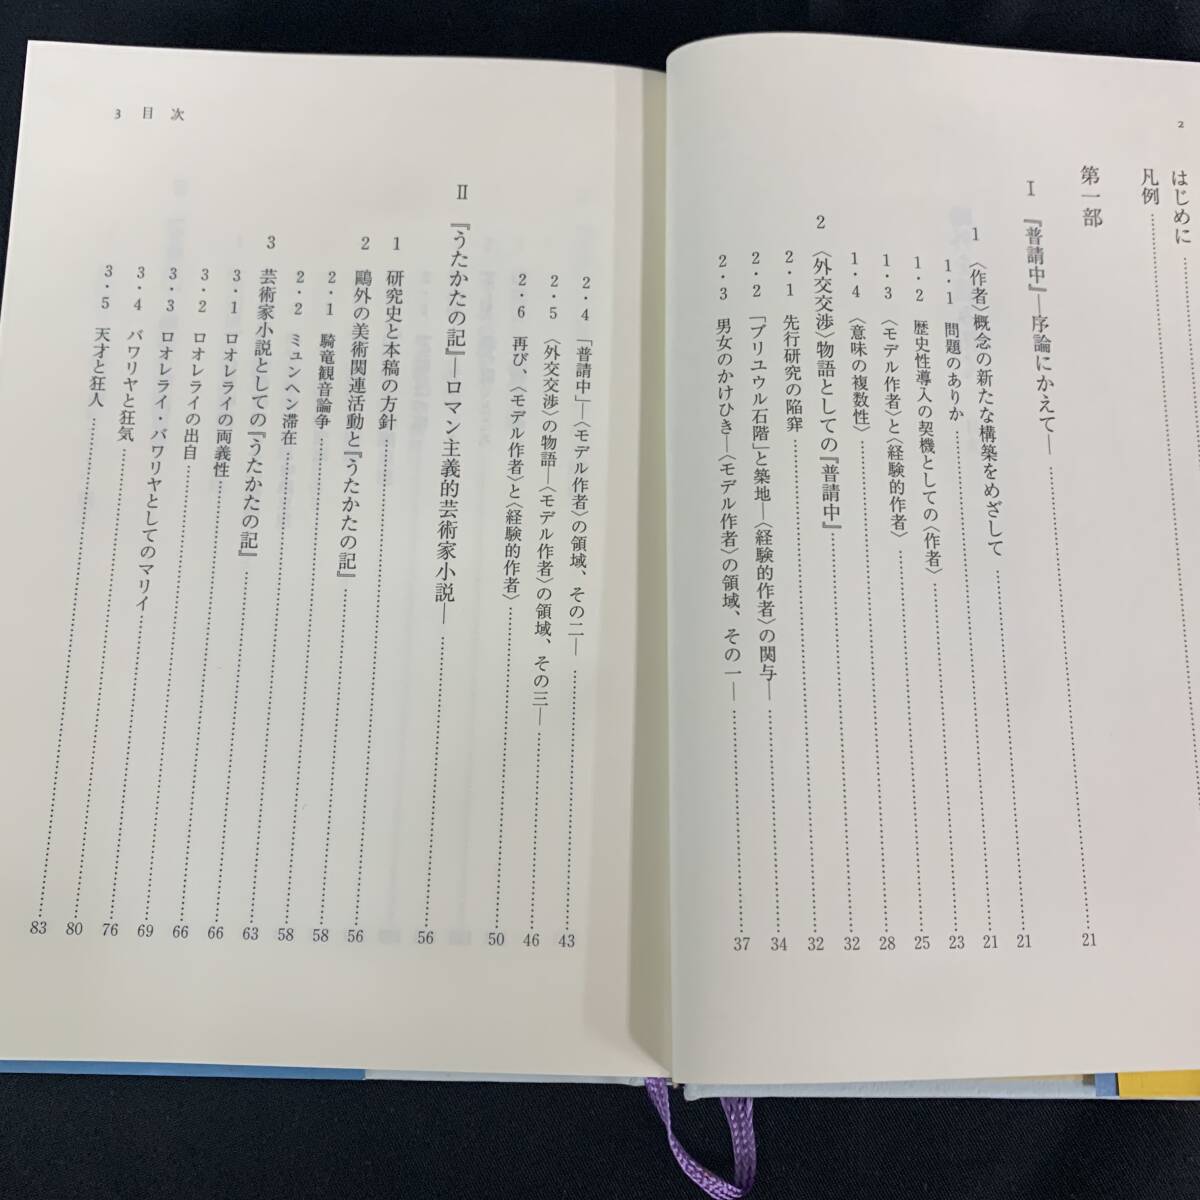 2
はじめに
凡例
第一部
Ⅰ 『普請中』―序論にかえて― 21
1 〈作者〉概念の新たな構築をめざして 21
1・1 問題のありか 21
1・2 歴史性導入の契機としての〈作者〉 23
1・3 〈モデル作者〉と〈経験的作者〉 25
1・4 〈意味の複数性〉 28
2 〈外交交渉〉物語としての『普請中』 32
2・1 先行研究の陥穽 32
2・2 「ブリユウル石階」と築地―〈経験的作者〉の関与― 34
2・3 男女のかけひき―〈モデル作者〉の領域、その一― 37
3 目次
2・4 「普請中」―〈モデル作者〉の領域、その二― 43
2・5 〈外交交渉〉の物語―〈モデル作者〉の領域、その三― 46
2・6 再び、〈モデル作者〉と〈経験的作者〉 50
Ⅱ 『うたかたの記』―ロマン主義的芸術家小説― 56
1 研究史と本稿の方針 56
2 鷗外の美術関連活動と『うたかたの記』 58
2・1 騎竜観音論争 58
2・2 ミュンヘン滞在 63
3 芸術家小説としての『うたかたの記』 66
3・1 ロオレライの両義性 66
3・2 ロオレライの出自 69
3・3 ロオレライ・バワリヤとしてのマリイ 76
3・4 バワリヤと狂気 80
3・5 天才と狂人 83